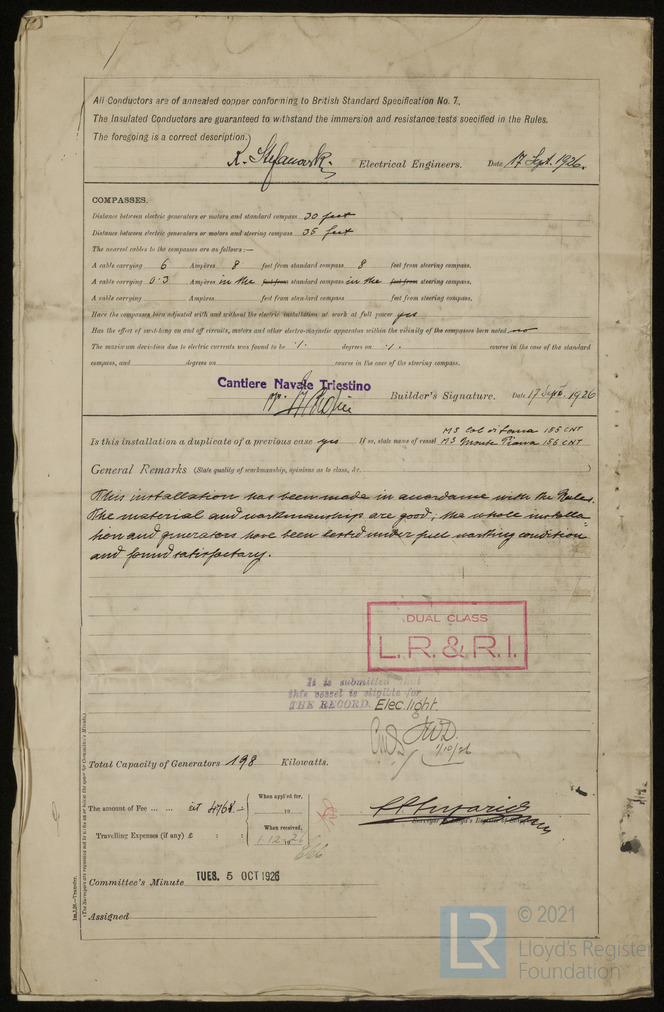 All Conductors are of annealed copper conforming to British Standard Specification No. 7.
The Insulated Conductors are guaranteed to withstand the immersion and resistance tests specified in the Rules.
The foregoing is a correct description.
Electrical Engineers. Date 17 Sept. 1926.
COMPASSES.
Distance between electric generators or motors and standard compass 30 feet
Distance between electric generators or motors and steering compass 35 feet
The nearest cables to the compasses are as follows:—
A cable carrying 6 Ampères 8 feet from standard compass 8 feet from steering compass.
A cable carrying 0.3 Ampères in the feet from standard compass in the feet from steering compass.
A cable carrying Ampères feet from standard compass feet from steering compass.
Have the compasses been adjusted with and without the electric installation at work at full power yes
Has the effect of switching on and off circuits, motors and other electro-magnetic apparatus within the vicinity of the compasses been noted no
The maximum deviation due to electric currents was found to be degrees on course in the case of the standard
compass, and degrees on course in the case of the steering compass.
Cantiere Navale Triestino
Builder's Signature. Date 17 Sept. 1926
MS Col di Lana 155 CNT
Is this installation a duplicate of a previous case yes If so, state name of vessel MS Monte Piana 156 CNT
General Remarks (State quality of workmanship, opinions as to class, &c. )
This installation has been made in accordance with the Rules.
The material and workmanship are good; the whole installa-
tion and generators have been tested under full working condition
and found satisfactory.
DUAL CLASS
L.R. & R.I.
It is submitted that
this vessel is eligible for
THE RECORD. Elec. light.
JWD.
1/10/26
Total Capacity of Generators 198 Kilowatts.
The amount of Fee ... ... £it 4768
When applied for,
19
Travelling Expenses (if any) £ : :
When received,
1.12.1926
Committee's Minute TUES. 5 OCT 1926
Assigned
Im.1.26.—Transfer.
© 2021
Lloyd's Register
Foundation
LR